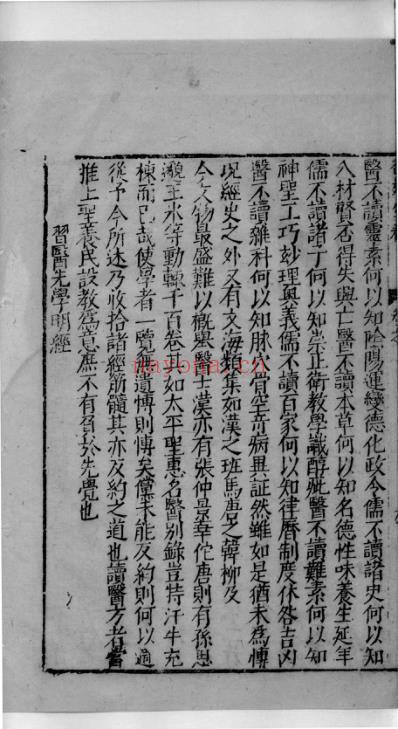 醫不讀靈素何以知陰陽運變德化政令儒不讀諸史何以知
人材賢否得失興亡醫不讀本草何以知名德性味養生延年
儒不讀諸子何以知崇正衛教學識醇疵醫不讀難素何以知
神聖工巧妙理奧義儒不讀百家何以知律曆制度休咎吉凶
醫不讀雜科何以知脉穴骨空奇病異証然雖如是猶未為博
況經史之外又有文海類集如漢之班馬唐之韓柳及
今文物最盛難以概舉醫士漢亦有張仲景華佗唐則有孫思
邈王氷等動輒千百卷其如太平聖惠名醫別錄豈特汗牛充
棟而已哉使學者一覽無遺博則博矣儻未能反約則何以適
從予今所述乃收拾諸經筋髓其亦反約之道也讀醫方者當
推上聖養民設教為意庶不有負於先覺也
習醫先學明經
nayona.cn